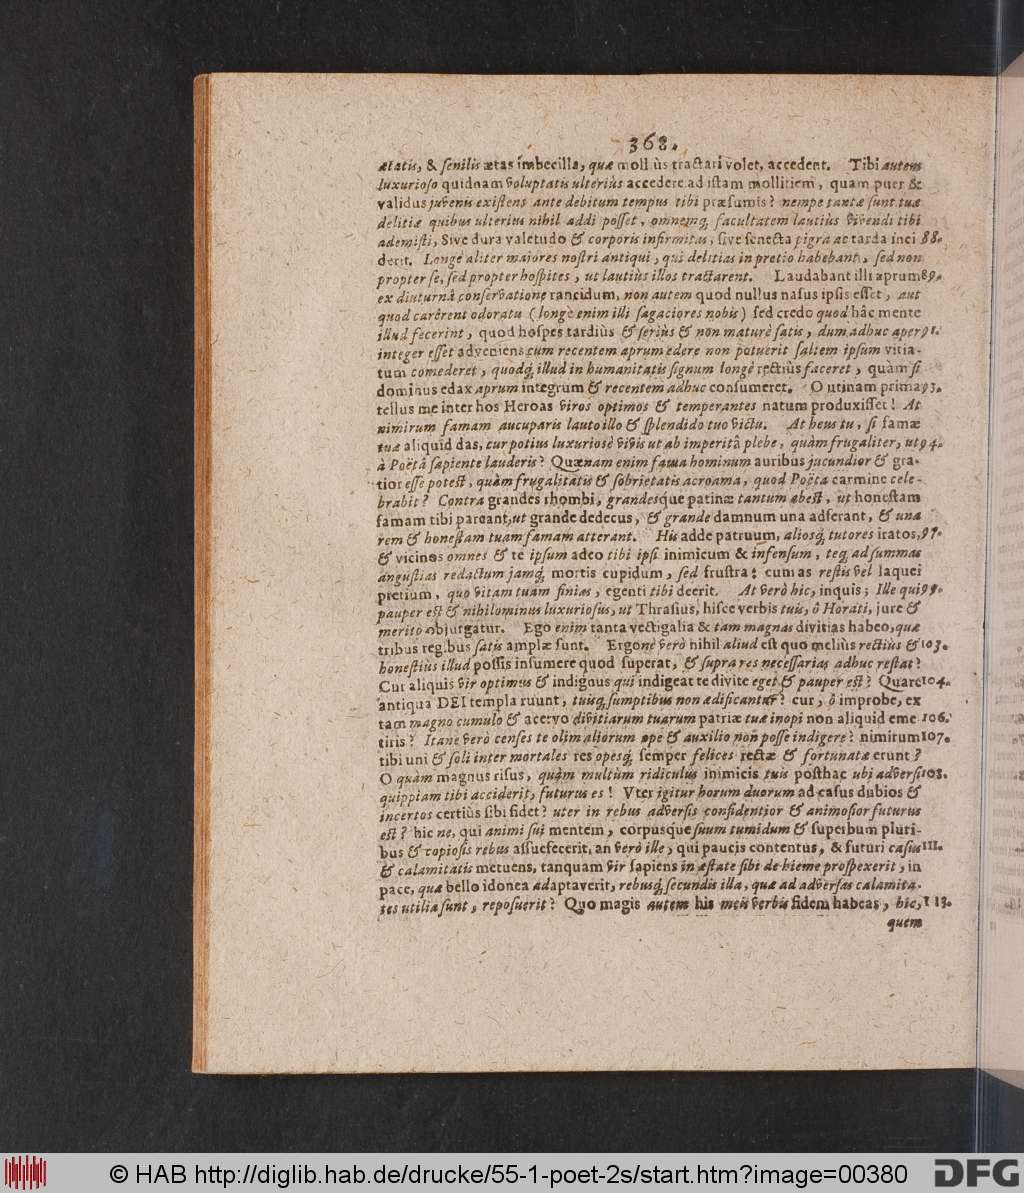 368.
ætatis, & senilis ætas imbecilla, quæ molliùs tractari volet, accedent. Tibi autem
luxurioso quidnam voluptatis ulteriùs accedere ad istam mollitiem, quam puer &
validus juvenis existens ante debitum tempus tibi præsumis? nempe tantæ sunt tuæ
delitiæ quibus ulterius nihil addi posset, omnemq; facultatem lautiùs vivendi tibi
ademisti, Sive dura valetudo & corporis infirmitas, sive senecta pigra ac tarda inci 88.
derit. Longè aliter majores nostri antiqui, qui delitias in pretio habebant, sed non
propter se, sed propter hospites, ut lautiùs illos tractarent. Laudabant illi aprum 89.
ex diuturnâ conservatione rancidum, non autem quod nullus nasus ipsis esset, aut
quod carêrent odoratu (longè enim illi sagaciores nobis) sed credo quod hâc mente
illud fecerint, quod hospes tardiùs & seriùs & non maturè satis, dum adhuc aper 91.
integer esset adveniens cum recentem aprum edere non potuerit saltem ipsum vitia-
tum comederet, quodq; illud in humanitatis signum longè rectiùs faceret, quàm si
dominus edax aprum integrum & recentem adhuc consumeret. O utinam prima 93.
tellus me inter hos Heroas viros optimos & temperantes natum produxisset! At
nimirum famam aucuparis lauto illo & splendido tuo victu. At heus tu, si famæ
tuæ aliquid das, cur potius luxuriosè vivis ut ab imperitâ plebe, quàm frugaliter, ut 94.
à Poëtâ sapiente lauderis? Quænam enim fama hominum auribus jucundior & gra-
tior esse potest, quàm frugalitatis & sobrietatis acroama, quod Poëta carmine cele-
brabit? Contra grandes rhombi, grandesque patinæ tantum abest, ut honestam
famam tibi pareant, ut grande dedecus, & grande damnum una adferant, & una
rem & honestam tuam famam atterant. His adde patruum, aliosq; tutores iratos, 97.
& vicinos omnes & te ipsum adeo tibi ipsi inimicum & infensum, teq; ad summas
angustias redactum jamq; mortis cupidum, sed frustra: cum as restis vel laquei
pretium, quo vitam tuam finias, egenti tibi deerit. At verò hic, inquis; Ille qui 99.
pauper est & nihilominus luxuriosus, ut Thrasius, hisce verbis tuis, ô Horati, jure &
meritò objurgatur. Ego enim tanta vectigalia & tam magnas divitias habeo, quæ
tribus regibus satis amplæ sunt. Ergone verò nihil aliud est quo meliùs rectiùs & 103.
honestiùs illud possis insumere quod superat, & supra res necessarias adhuc restat?
Cur aliquis vir optimus & indignus qui indigeat te divite eget & pauper est? Quare 104.
antiqua DEI templa ruunt, tuisq; sumptibus non ædificantur? cur, ô improbe, ex
tam magno cumulo & acervo divitiarum tuarum patriæ tuæ inopi non aliquid eme 106.
tiris? Itane verò censes te olim aliorum ope & auxilio non posse indigere? nimirum 107.
tibi uni & soli inter mortales res opesq; semper felices rectæ & fortunatæ erunt?
O quàm magnus risus, quàm multùm ridiculus inimicis tuis posthac ubi adversi 108.
quippiam tibi acciderit, futurus es! Vter igitur horum duorum ad casus dubios &
incertos certiùs sibi fidet? uter in rebus adversis confidentior & animosior futurus
est? hic ne, qui animi sui mentem, corpusque suum tumidum & superbum pluri-
bus & copiosis rebus assuefecerit, an verò ille, qui paucis contentus, & futuri casus 111.
& calamitatis metuens, tanquam vir sapiens in æstate sibi de hieme prospexerit, in
pace, quæ bello idonea adaptaverit, rebusq; secundis illa, quæ ad adversas calamita-
tes utilia sunt, reposuerit? Quo magis autem his meis verbis fidem habeas, hic, 113.
quem
© HAB http://diglib.hab.de/drucke/55-1-poet-2s/start.htm?image=00380
DFG